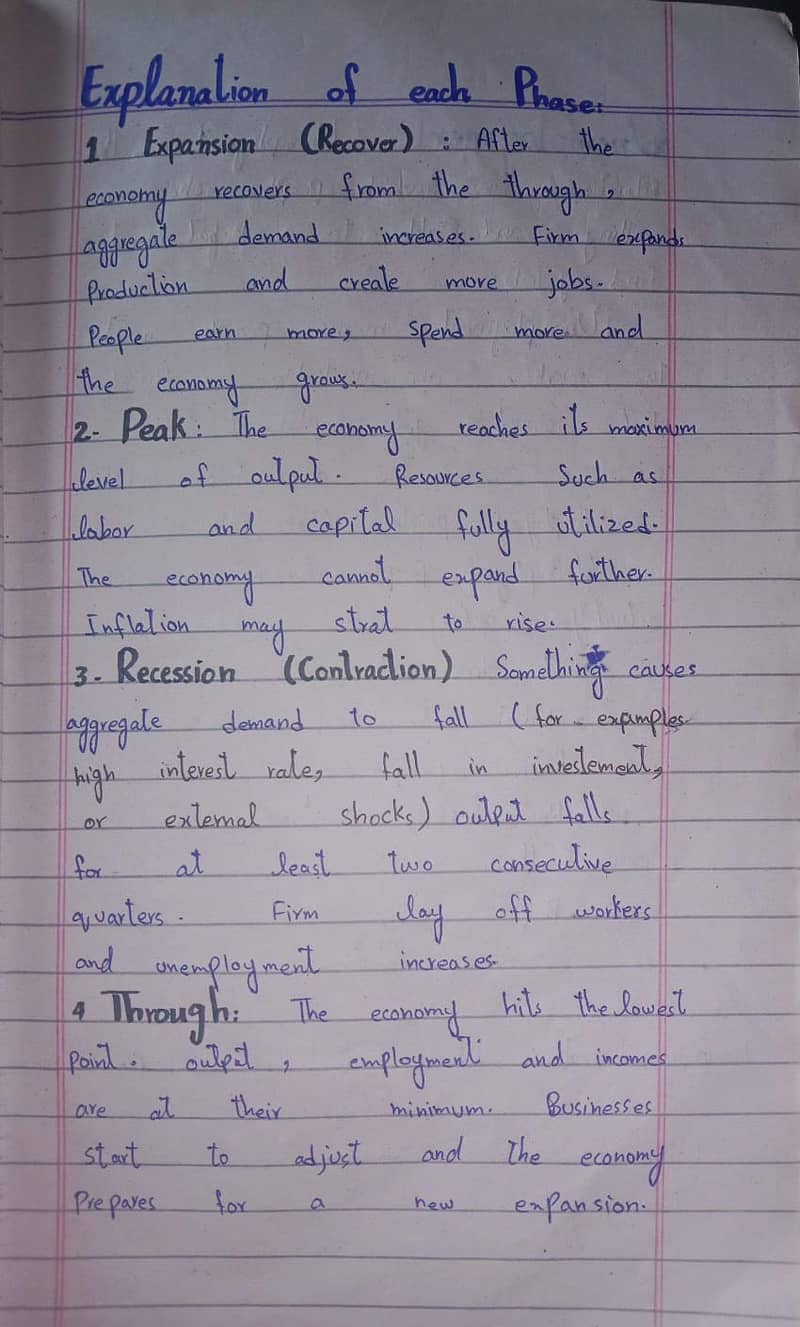 Explanation of each Phase:
1 Expansion (Recover) : After the
economy recovers from the through,
aggregate demand increases. Firm expands
Production and create more jobs.
People earn more, spend more and
the economy grows.
2- Peak: The economy reaches its maximum
level of output. Resources Such as
labor and capital fully utilized.
The economy cannot expand further.
Inflation may strat to rise.
3- Recession (Contraction) Something causes
aggregate demand to fall (for examples
high interest rate, fall in investement,
or external shocks) output falls
for at least two consecutive
quarters. Firm lay off workers
and unemployment increases.
4 Through: The economy hits the lowest
Point. output, employment and incomes
are at their minimum. Businesses
start to adjust and the economy
Prepares for a new expansion.